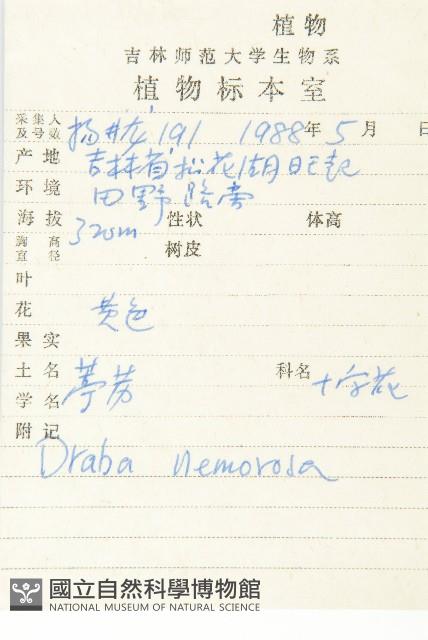 植物
吉林师范大学生物系
植物标本室
采集人及号数 杨井友 191 1988年5月 日
产地 吉林省松花湖
环境 田野路旁
海拔 320m 性状 体高
胸高直径 树皮
叶
花 黄色
果实
土名 葶苈 科名 十字花
学名
附记
Draba nemorosa
國立自然科學博物館
NATIONAL MUSEUM OF NATURAL SCIENCE